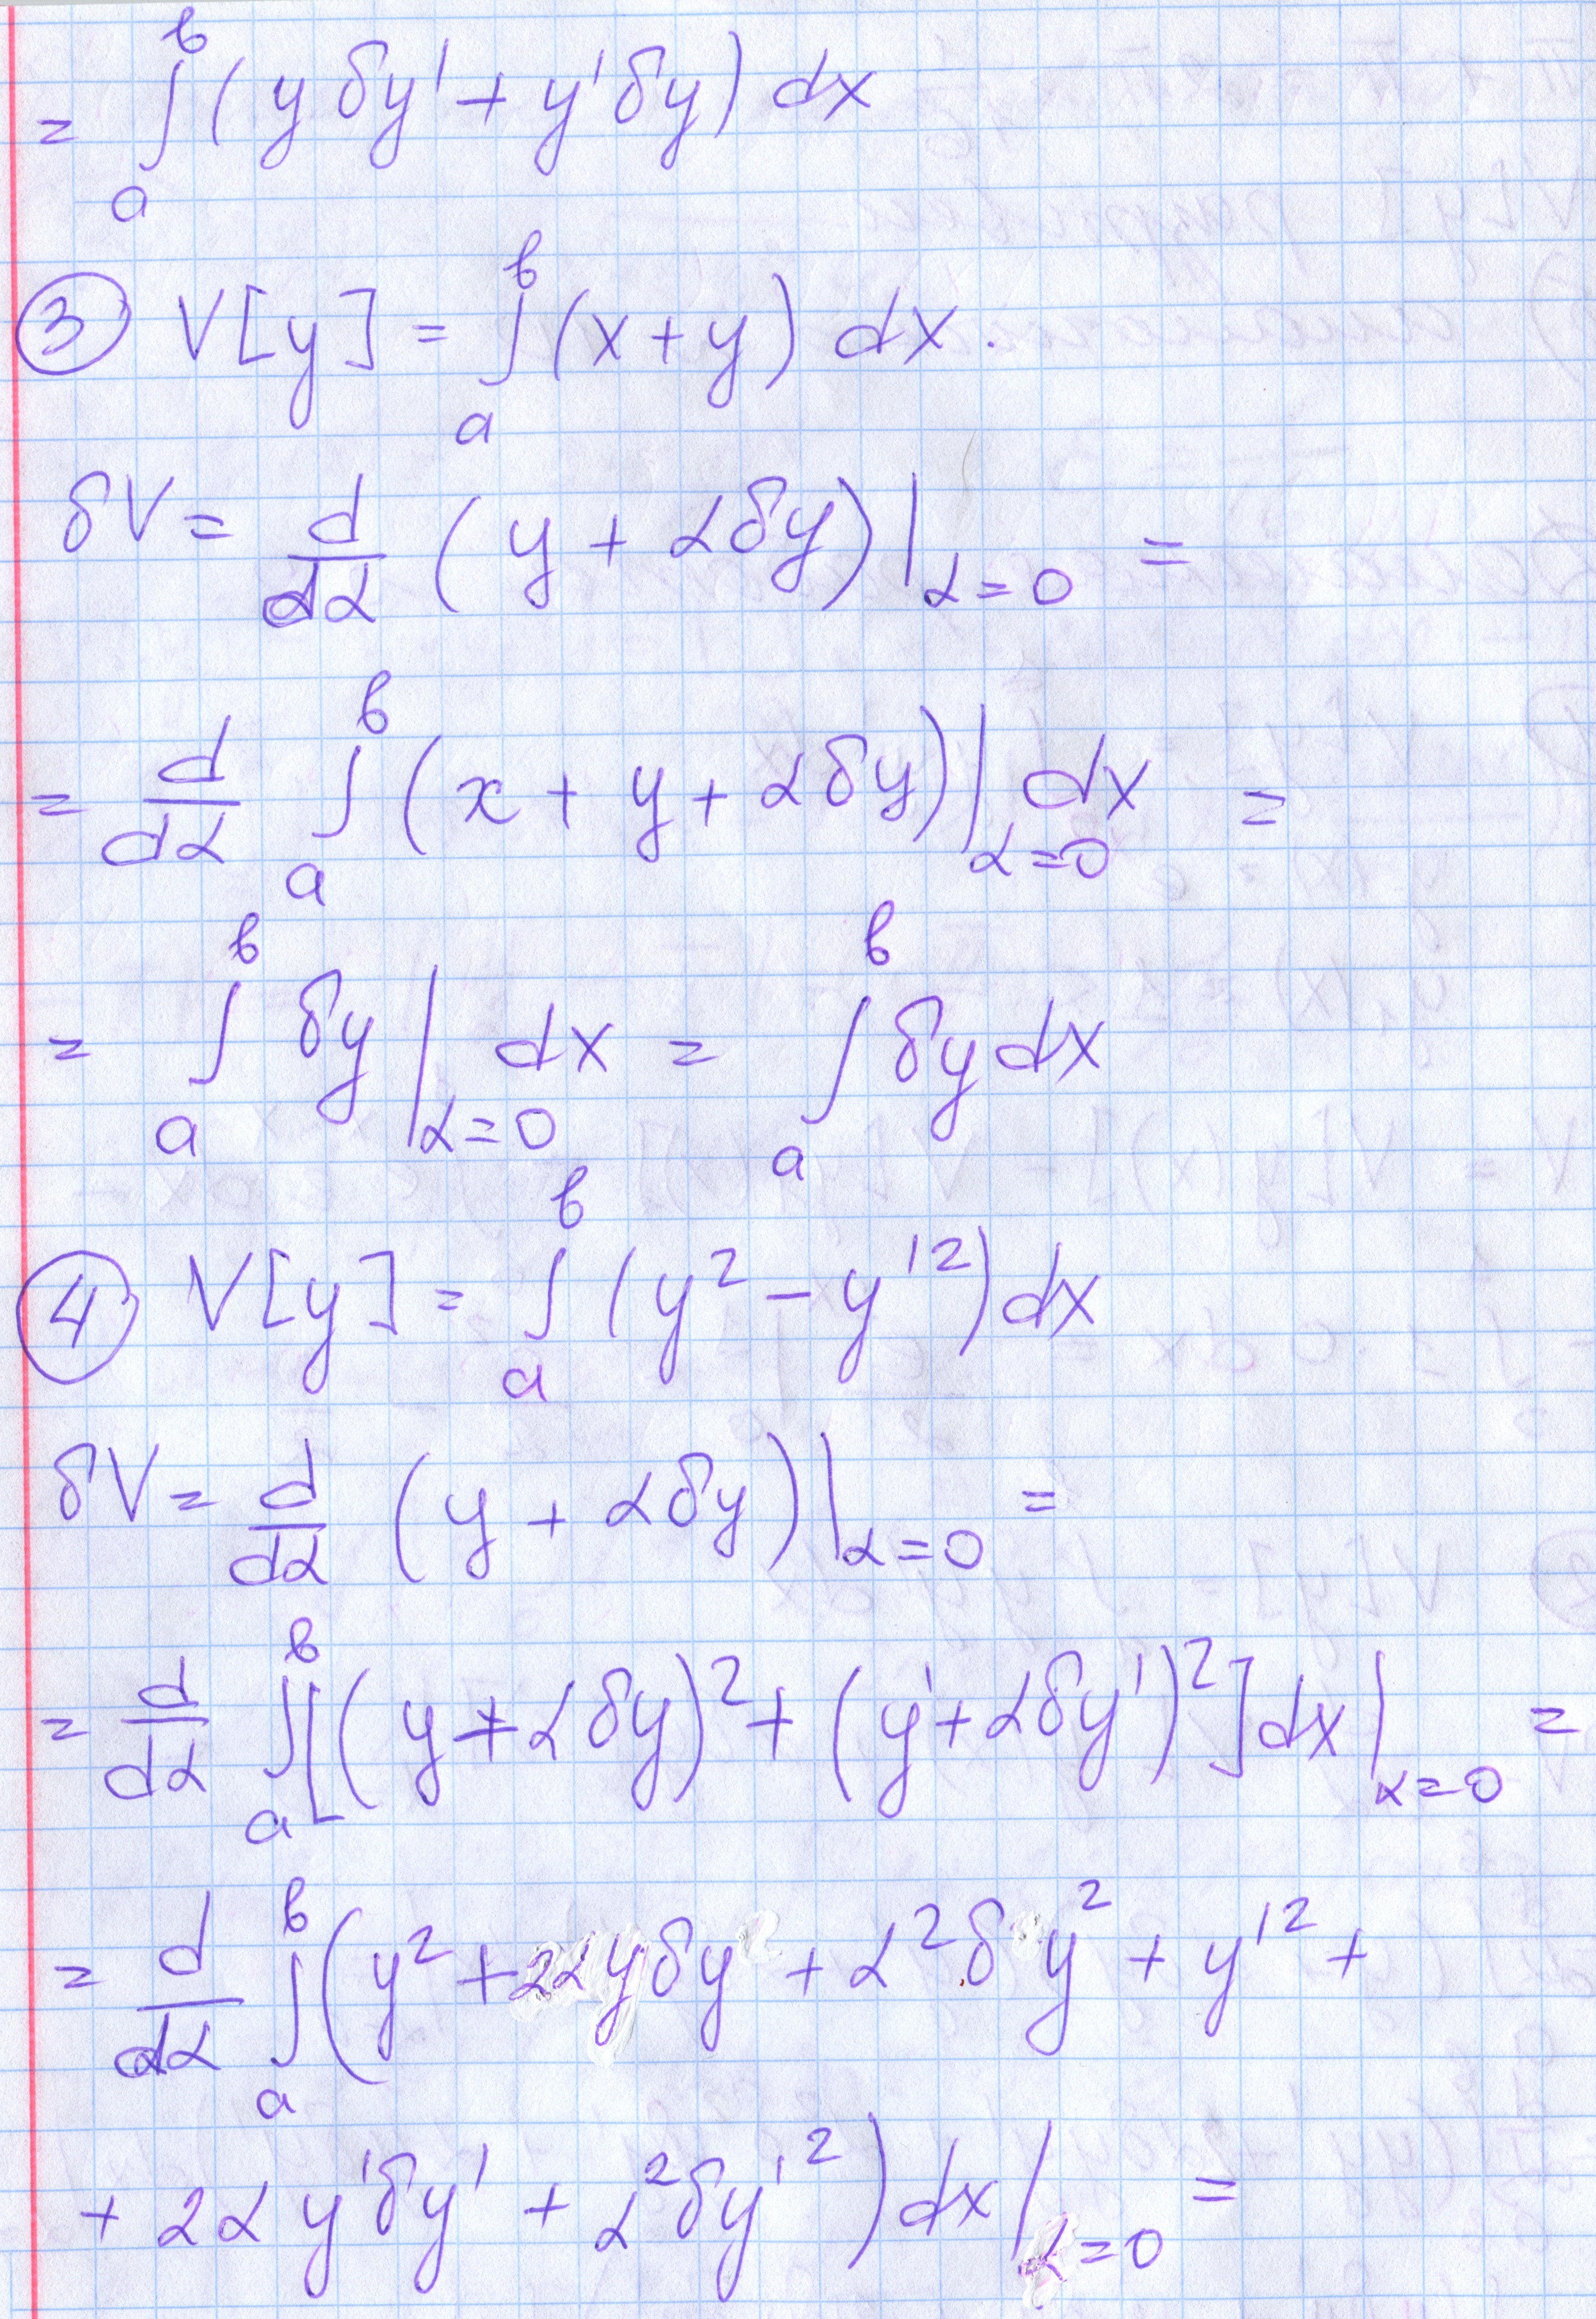 = ∫ₐᵇ (y δy' + y'δy) dx
③ V[y] = ∫ₐᵇ (x+y) dx.
δV = d/dα (y + αδy)|α=0 =
= d/dα ∫ₐᵇ (x + y + αδy)|α=0 dx =
= ∫ₐᵇ δy|α=0 dx = ∫ₐᵇ δy dx
④ V[y] = ∫ₐᵇ (y² − y'²) dx
δV = d/dα (y + αδy)|α=0 =
= d/dα ∫ₐᵇ [(y + αδy)² + (y' + αδy')²] dx|α=0 =
= d/dα ∫ₐᵇ (y² + 2αyδy + α²δy² + y'² +
+ 2αy'δy' + α²δy'²) dx|α=0 =